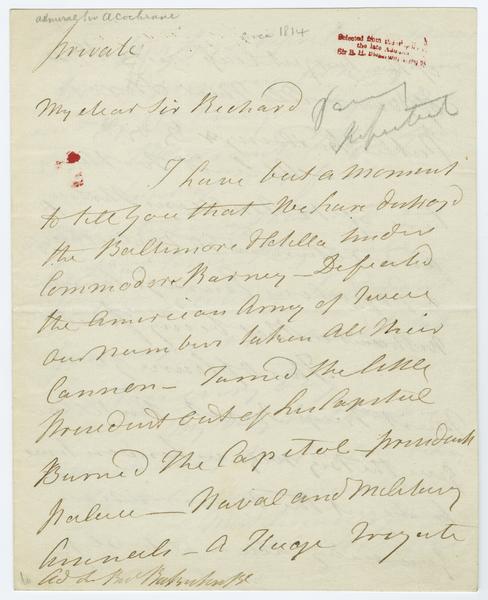 Admiral Sir A Cochrane
circa 1814
Private
Selected from the
the late Admiral
Sir R. H.
My dear Sir Richard
I have but a moment
to tell you that We have destroyd
the Baltimore Flotilla under
Commodore Barney – Defeated
the American Army of Twice
our number taken All Their
Cannon – Turned the little
President out of his Capitol
Burned The Capitol – Presidents
Palace – Naval and Military
Arsenals – A Huge Frigate